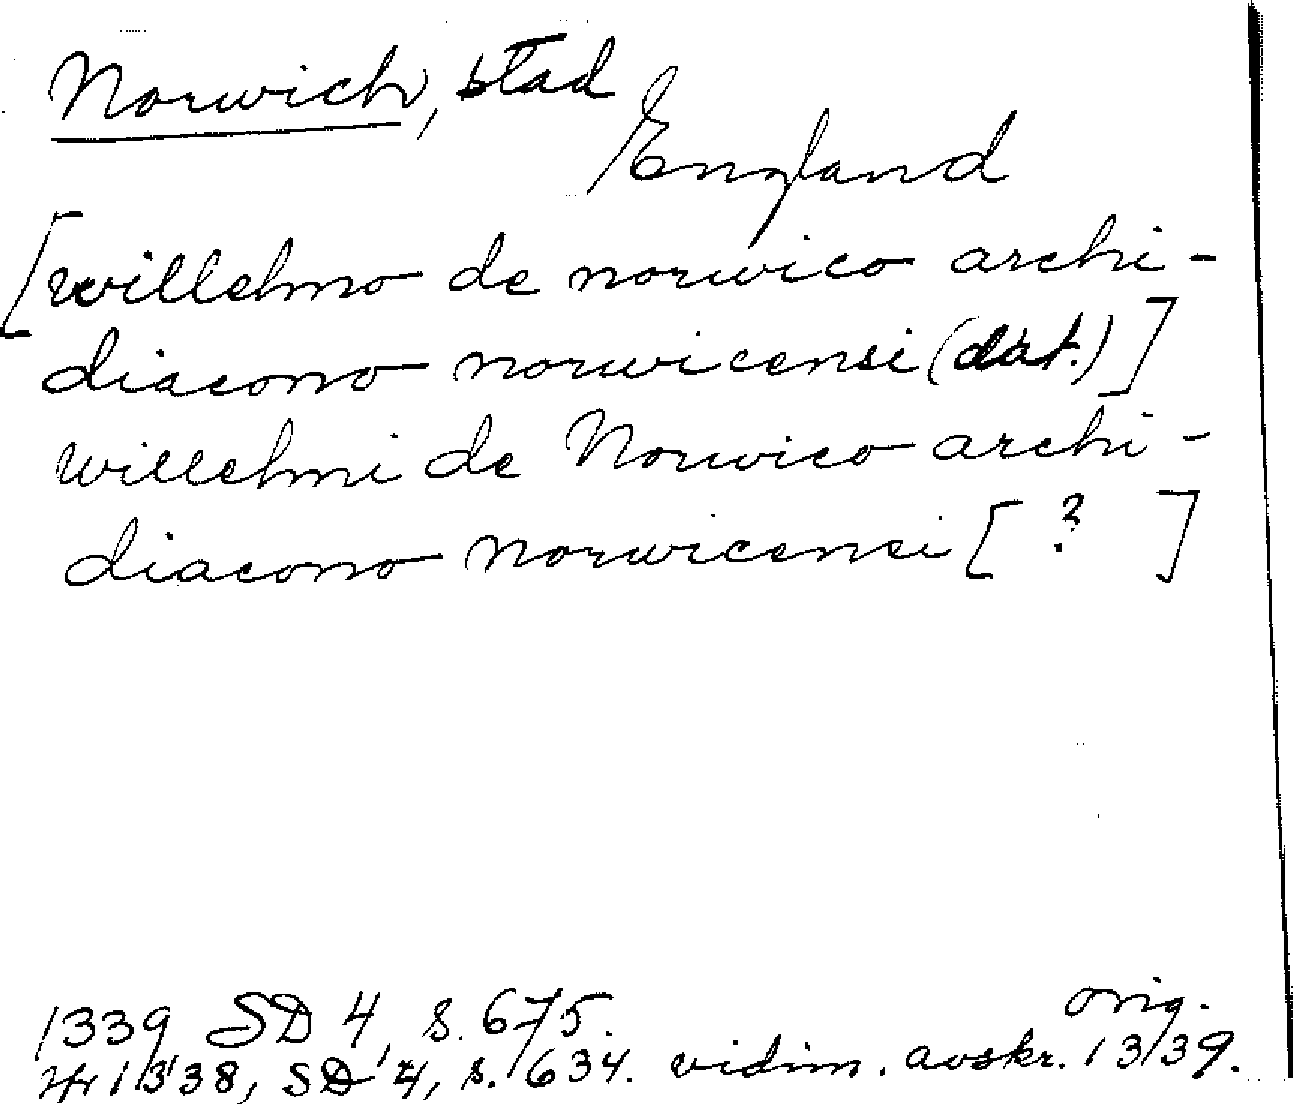 Norwich, stad
England
[willelmo de norwico archi-
diacono norwicensi (dat.)]
willelmi de Norwico archi-
diacono norwicensi [ ? ]
1339 SD 4, s. 675. orig.
1338, SD 4, s. 634. vidim. avskr. 1339.